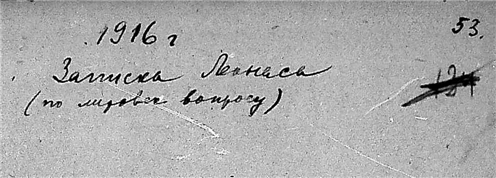 1916 г
53.
Записка Леонаса
(по мировск вопросу)
124